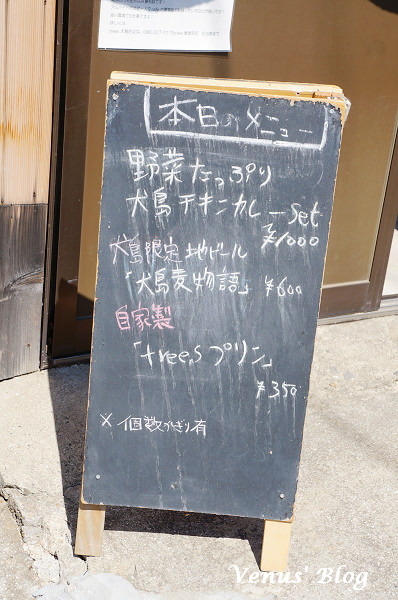 本日のメニュー
野菜たっぷり
犬島チキンカレーset
¥1000
犬島限定地ビール
「犬島麦物語」 ¥600
自家製
「treesプリン」
¥350
※個数かぎり有
Venus' Blog